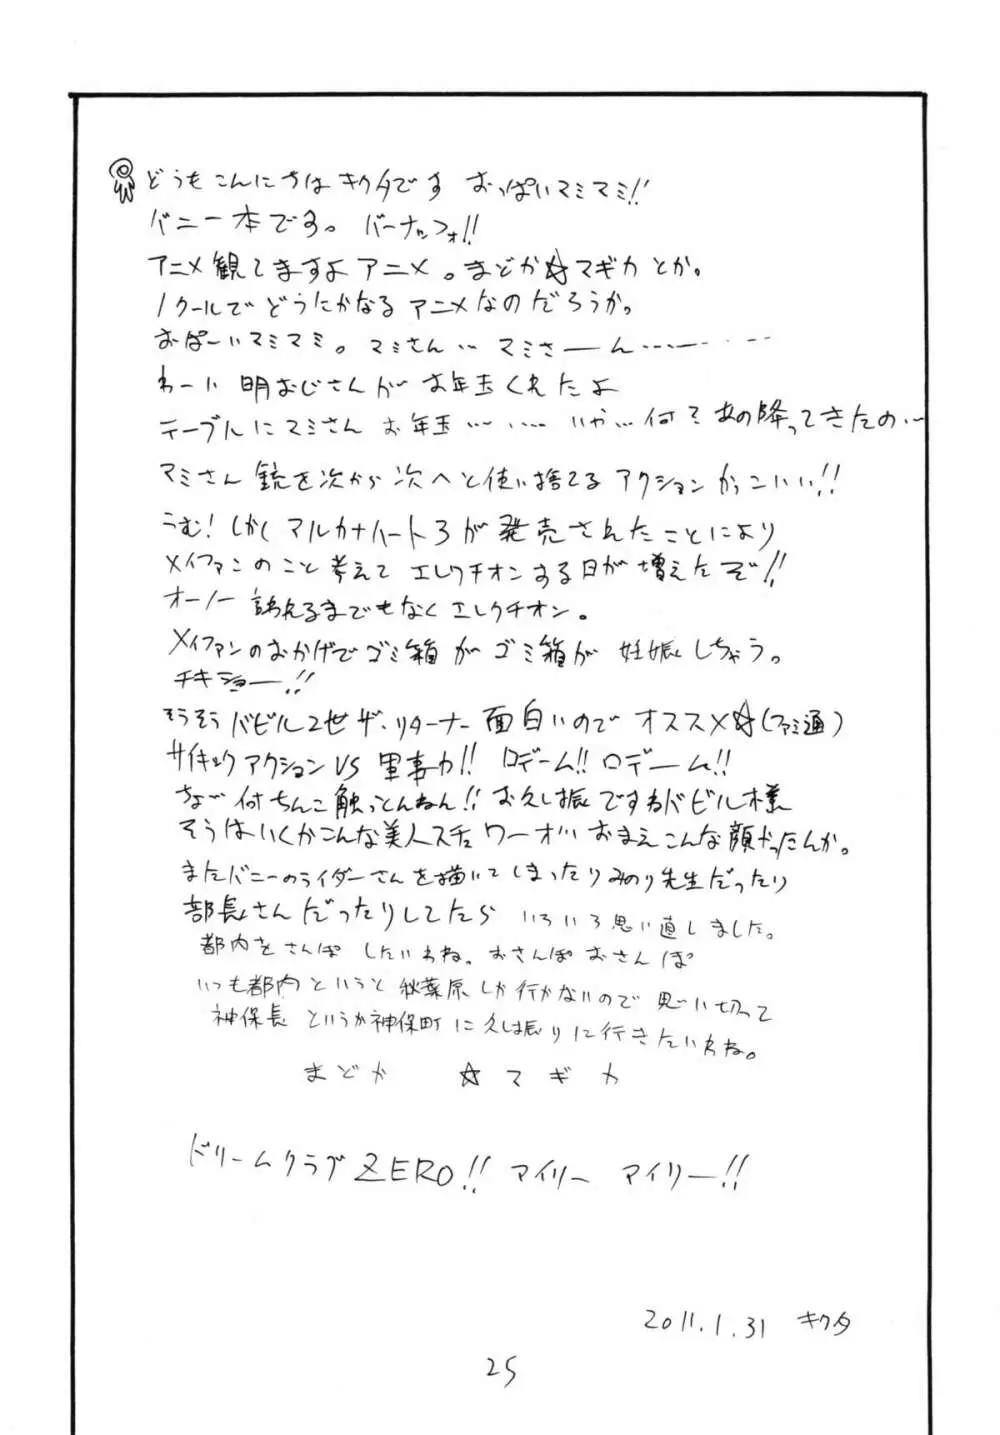 どうもこんにちはキクタです おっぱいマミマミ!!
バニー本です。バーナッフォ!!
アニメ観てますよアニメ。まどか☆マギカとか。
1クールでどうにかなるアニメなのだろうか。
おぱーいマミマミ。マミさん… マミさーん…ー…‥
わーい 明おじさんがお年玉くれたよ
テーブルにマミさんお年玉………いや…何てあの降ってきたの…
マミさん銃を次から次へと使い捨てるアクションかっこいい!!
うむ!しかしマルカナハート3が発売されたことにより
メイファンのこと考えてエレクチオンする日が増えたぞ!!
オーノー 訴えるまでもなくエレクチオン。
メイファンのおかげでゴミ箱がゴミ箱が妊娠しちゃう。
チキショー!!
そうそうバビル2世ザ・リターナー面白いのでオススメ☆(ファミ通)
サイキックアクションVS軍事力!!ロデーム!!ロデーム!!
ちょw 何ちんこ触っとんねん!!お久し振ですねバビル様
そうはいくかこんな美人スキ ワーオ!!おまえこんな顔やったんか。
またバニーのライダーさんを描いてしまったりみのり先生だったり
部長さんだったりしてたら いろいろ思い直しました。
都内をさんぽしたいわね。おさんぽおさんぽ
いつも都内というと秋葉原しか行かないので思い切って
神保長というか神保町に久し振りに行きたいわね。
まどか ☆マギカ
ドリームクラブZERO!!アイリーアイリー!!
2011.1.31 キクタ
25